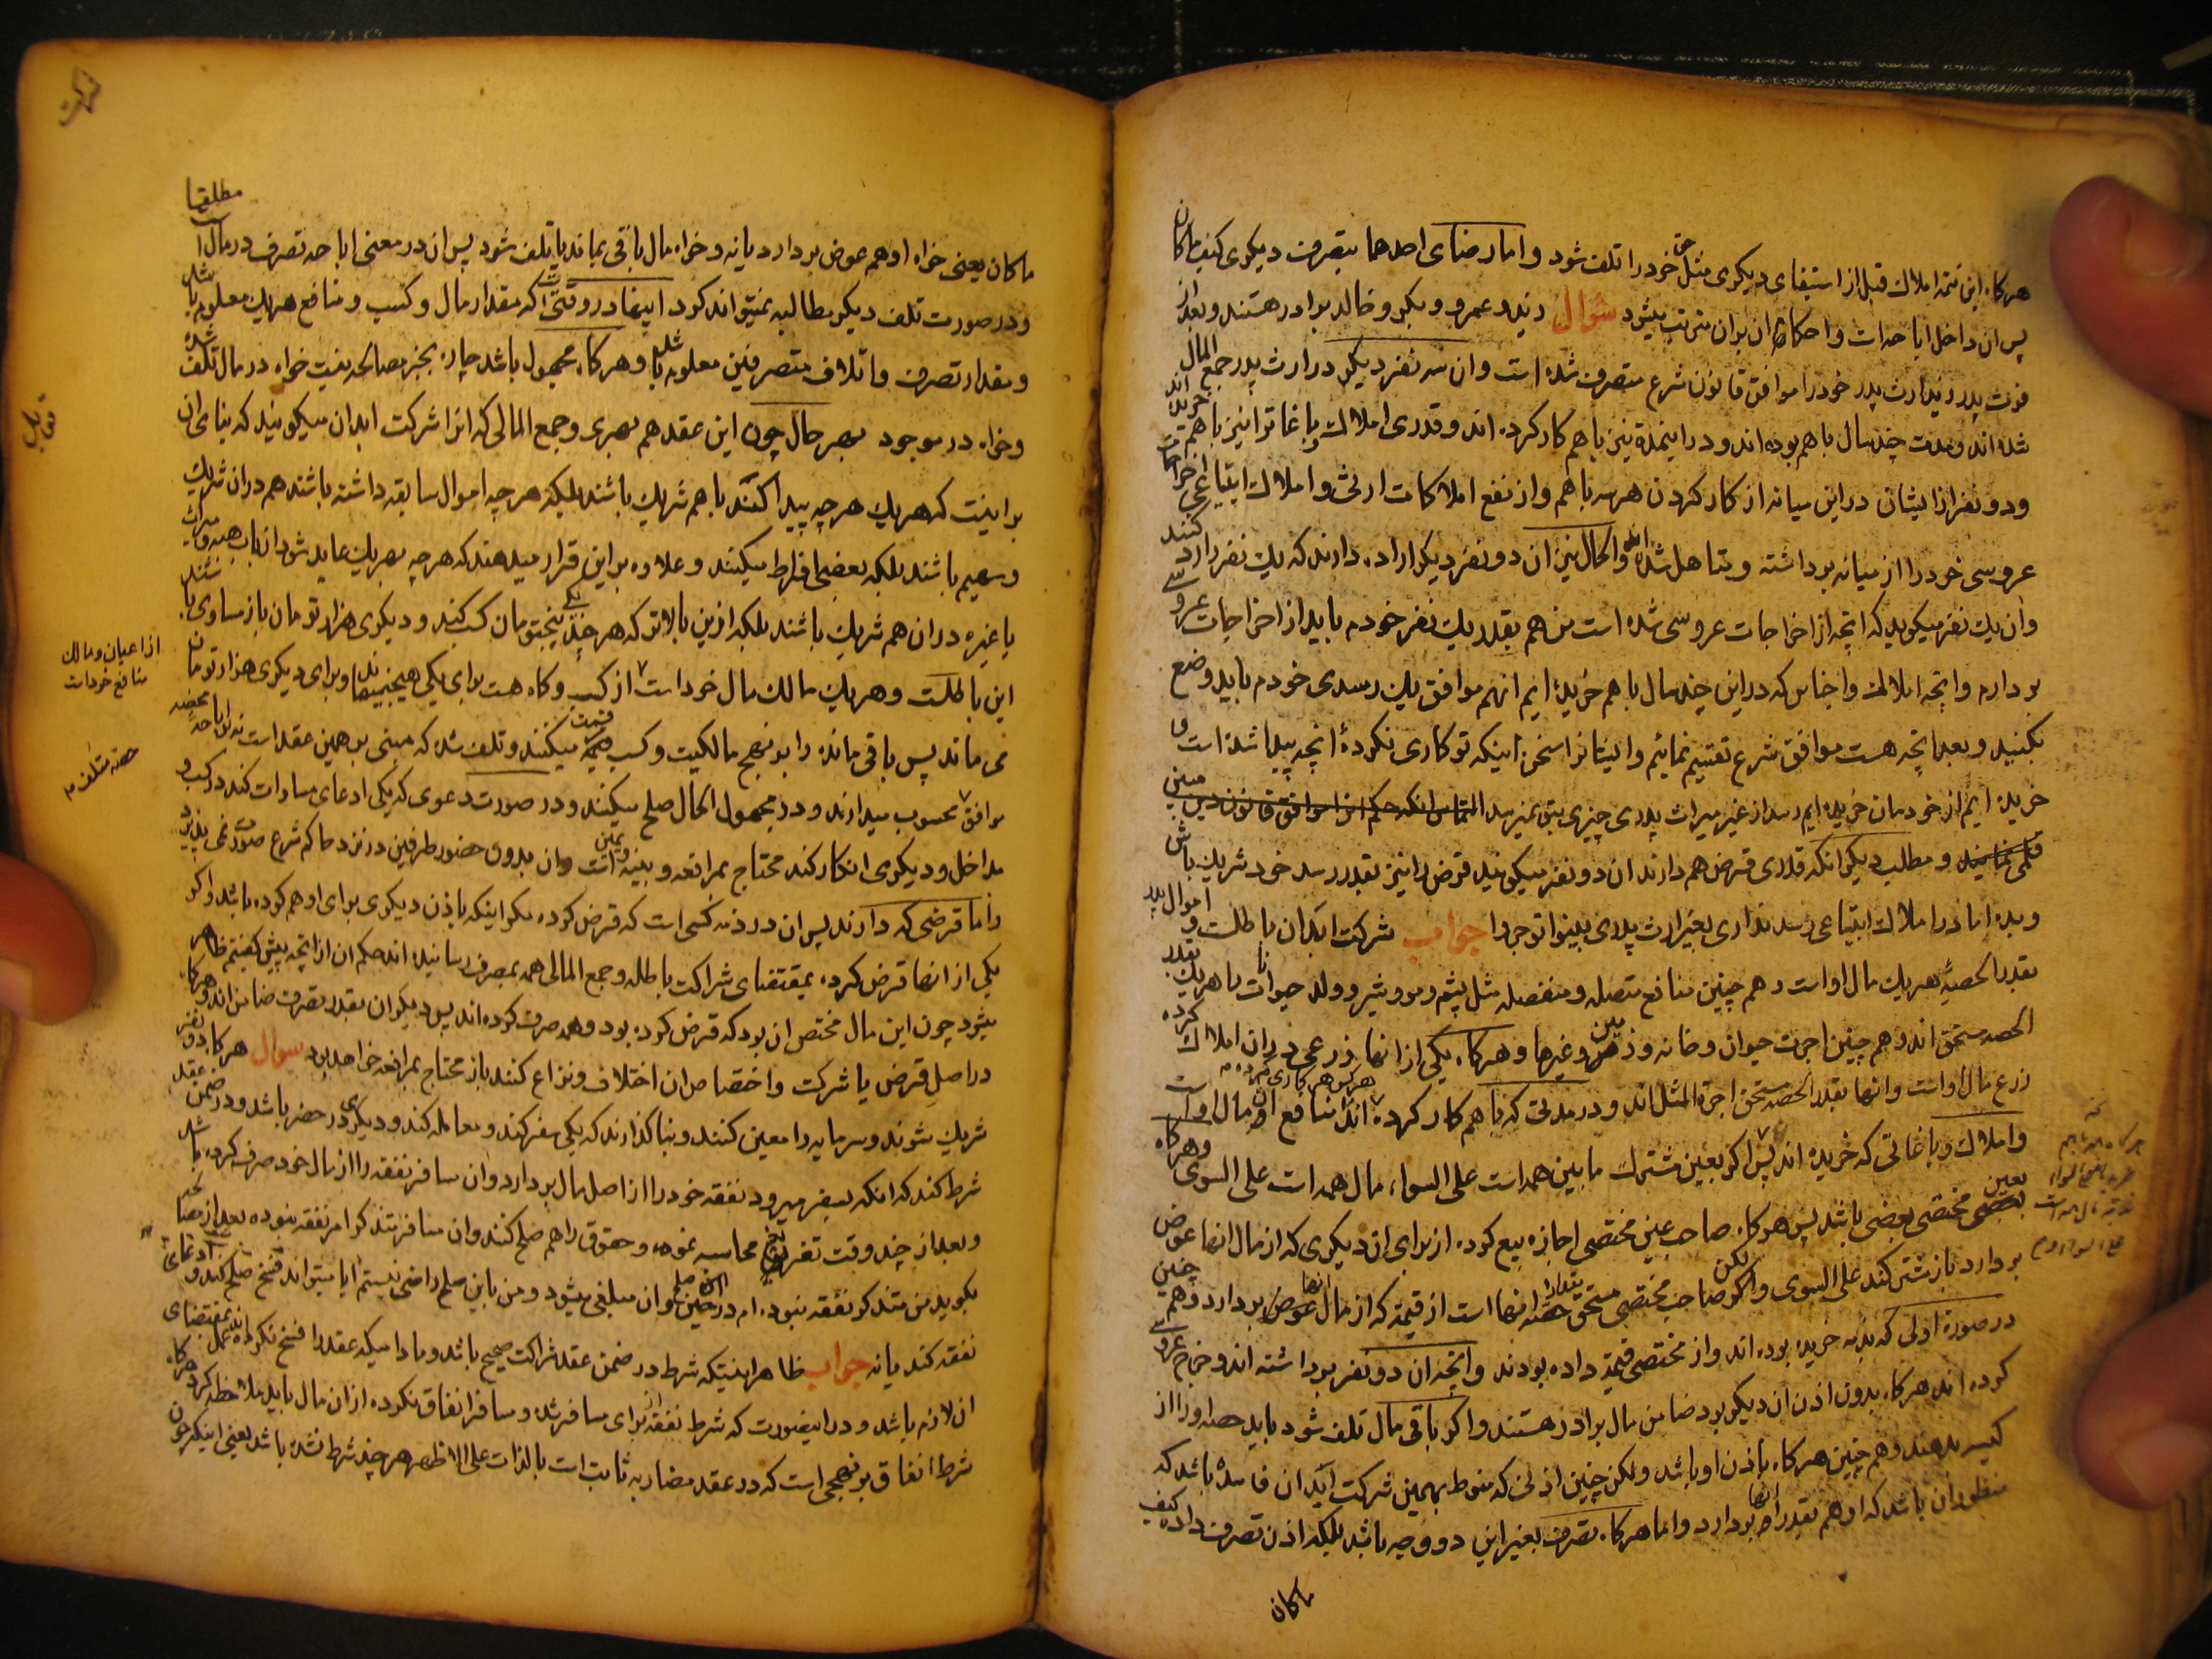 هرکاه این تتمه املاک قبل از استیفای دیکری مثل حق خود را تلف شود و اما رضای احدهما بتصرف دیکری کیف ماکان
پس ان داخل اباحه است و احکام ان بران مترتب میشود سؤال زید و عمرو و بکر و خالد برادر هستند و بعد از
فوت پدر زید ارث پدر خود را موافق قانون شرع متصرف شده است و ان سه نفر دیکر در ارث پدر جمع المال
شده اند و مدت چند سال با هم بوده اند و در اینمدة نیز با هم کار کرده اند و قدری املاک و باغات را نیز با هم خریده اند
و دو نفر از ایشان در این میانه از کار کردن هر سه با هم و از نفع املاکات ارثی و املاک ابتیاعی اخراجات
عروسی خود را از میانه برداشته و متاهل شده اند و الحال نیز ان دو نفر دیکر اراده دارند که یک نفر را رد کنند
و ان یک نفر میکوید که انچه از اخراجات عروسی شده است من هم بقدر یک نفر خودم باید از اخراجات عروسی
بردارم و انچه املاک و اجناس که در این چند سال با هم خریده ایم انهم موافق یک رسدی خودم باید وضع
بکنید و بعد انچه هست موافق شرع تقسیم نمائیم و ایشانرا سخن اینکه تو کاری نکردهٔ انچه پیدا شده است و
خریده ایم از خودمان خریده ایم رسد از غیر میراث پدری چیزی بتو نمیرسد التماس انکه حکم انرا موافق قانون دین مبین
قلمی نمایند و مطلب دیکر انکه قدری قرض هم دارند ان دو نفر میکویند قرض را نیز بقدر رسد خود شریک باش
و بده اما در املاک ابتیاعی رسد نداری بغیر ارث پدری بینوا توجروا جواب شرکت ابدان باطلست و اموال پدر
بقدر الحصه هر یک مال او است و هم چنین منافع متصله و منفصله مثل پشم و مو و شیر و ولد حیوانات با هر یک بقدر
الحصه مستحق اند و هم چنین اجرت حیوان و خانه و زمین و غیرها و هرکاه یکی از انها زرعی در ان املاک کرده
زرع مال او است و انها بقدر الحصه مستحق اجرة المثل اند و در مدتی که با هم کار کرده اند منافع مال او است
و املاک و باغاتی که خریده اند پس اکر بعین مشترک ما بین همه است علی السواء مال همه است علی السوی و هرکاه
بعین مختصی بعضی باشد پس هرکاه صاحب عین مختصی اجازه بیع کرده از برای ان دیکری که از مال انها عوض
بردارد باز شتی کند علی السوی و لکن صاحب مختصی مستحق مقدار حصه انها است از قیمة که از مال انها عوض بردارد و هم چنین
در صورة اولی که بذمه خریده بوده اند و از مختصی قیمة داده بودند و انچه ان دو نفر برداشته اند و خرج عروسی
کرده اند هرکاه بدون اذن ان دیکر بود ضامن مال برادر هستند و اکر باقی مال تلف شود باید حصه او را از
کیسه بدهند و هم چنین هرکاه باذن او باشد و لکن چنین اذنی که منوط بهمین شرکت ابدان فاسده باشد که
منظور ان باشد که او هم بقدر انها بردارد و اما هرکاه تصرف بغیر این دو وجه باشد بلکه اذن تصرف داده کیف
ماکان
شرکت
ماکان یعنی خواه او هم عوض بردارد یا نه و خواه مال باقی بماند یا تلف شود پس ان در معنی اباحه تصرف در مال است مطلقا
و در صورت تلف دیکر مطالبه نمیتواند کرد اینها در وقتی است که مقدار مال و کسب و منافع هر یک معلوم باشد
و مقدار تصرف و اتلاف متصرفین معلوم باشد و هرکاه مجهول باشد چاره بجز مصالحه نیست خواه در مال تلف شده
و خواه در موجود بهر حال چون این عقد هم بهری و جمع المالی که انرا شرکت ابدان میکویند که بنای ان
بر اینست که هر یک هر چه پیدا کند با هم شریک باشند بلکه هر چه اموال سابقه داشته باشند هم در ان شریک
و سهیم باشند بلکه بعضی افراط میکنند و علاوه بر این قرار میدهند که هر چه بهر یک عاید شود از باب هبه و میراث
یا غیره در ان هم شریک باشند بلکه ازین بالاتر که هر چند یکی پنجتومان کسب کند و دیکری هزار تومان باز مساوی باشند
این باطلست و هر یک مالک مال خود است از کسب و کاه هست برای یکی هیچ نمیماند و برای دیکری هزار تومان
می ماند پس باقی مانده را بر نهج مالکیت و کسب قسمت میکنند و تلف شده که مبنی بر همین عقد است نه بر اباحه محضه
موافق محسوب میدارند و در مجهول الحال صلح میکنند و در صورت دعوی که یکی ادعای مساوات کند در کسب و
مداخل و دیکری انکار کند محتاج بمرافعه و بینه و یمین است و ان بدون حضور طرفین در نزد حاکم شرع صورت نمی پذیرد
و اما قرضی که دارند پس ان در ذمه کسی است که قرض کرده مکر اینکه باذن دیکری برای او هم کرده باشد و اکر
یکی از انها قرض کرده بمقتضای شراکت باطله و جمع المالی همه بمصرف رسانیده اند حکم ان از انچه پیش کفتیم ظاهر
میشود چون این مال مختص ان بود که قرض کرده بود و همه صرف کرده اند پس دیکران بقدر تصرف ضامن اند و هرکاه
در اصل قرض یا شرکت و اختصاص ان اختلاف و نزاع کنند باز محتاج بمرافعه خواهد بود سؤال هرکاه دو نفر
شریک شوند و سرمایه را معین کنند و بنا کذارند که یکی سفر کند و معامله کند و دیکری در حضر باشد و در ضمن عقد
شرط کند که انکه بسفر میرود نفقه خود را از اصل مال بردارد و ان مسافر نفقه را از مال خود صرف کرده باشد
و بعد از چند وقت تفریق محاسبه نموده و حقوق را هم صلح کنند و ان مسافر متذکر امر نفقه نبوده بعد از مصالحه
بکوید من متذکر نفقه نبوده ام در حین صلح و ان مبلغی میشود و من باین صلح راضی نیستم ایا میتواند فسخ صلح کند و ادعای
نفقه کند یا نه جواب ظاهر اینستکه شرط در ضمن عقد شراکت صحیح باشد و مادامیکه عقد را فسخ نکرده اند عمل بمقتضای
ان لازم باشد و در اینصورت که شرط نفقه از برای مسافر شده و مسافر انفاق نکرده از ان مال باید ملاحظه کرد هرکاه
شرط انفاق بر نهجی است که در عقد مضاربه ثابت است بالذات علی الاظهر هر چند شرط نشده باشد یعنی اینکه چون
از اعیان و مالک
منافع خود است
حصه متلف م